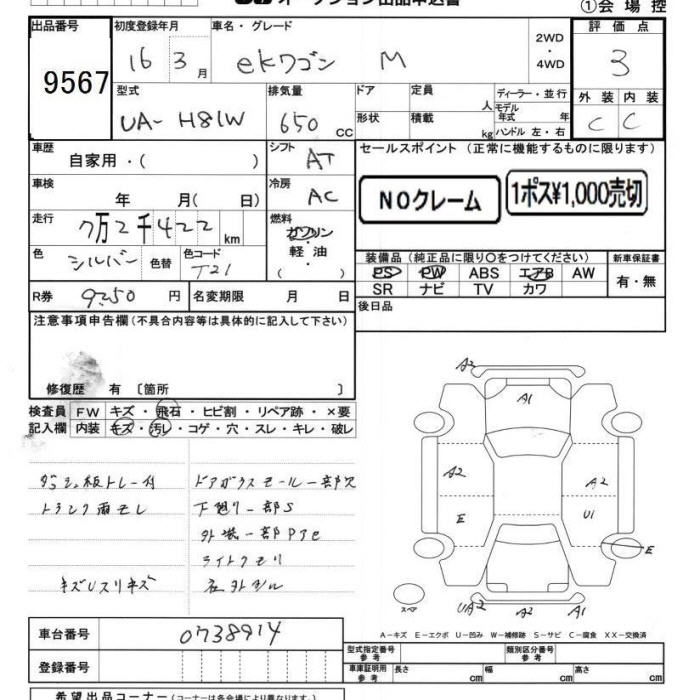 オークション出品申込書
①会場控
出品番号
9567
初度登録年月
16 3 月
車名・グレード
ekワゴン M
2WD
・
4WD
評価点
3
型式
UA-H81W
排気量
650 CC
ドア
形状
定員
人
積載
kg
ディーラー・並行
モデル
年式 年
ハンドル 左・右
外装 内装
C C
車歴
自家用・( )
シフト
AT
セールスポイント (正常に機能するものに限ります)
NOクレーム
1ポス¥1,000売切
車検
年 月( 日)
冷房
AC
走行
7万2千422 km
燃料
ガソリン
・
軽油
( )
色
シルバー
色替
色コード
T21
装備品 (純正品に限り〇をつけてください)
PS PW ABS エアB AW
SR ナビ TV カワ
新車保証書
有・無
R券
9250 円
名変期限 月 日
後日品
注意事項申告欄 (不具合内容等は具体的に記入して下さい)
修復歴 有 〔箇所 〕
検査員
記入欄
FW キズ・飛石・ヒビ割・リペア跡・×要
内装 キズ・汚レ・コゲ・穴・スレ・キレ・破レ
トランク雨モレ
下廻り一部S
外装一部
ライトクモリ
キズUスリキズ
A2
A1
A2
E
A2
U1
E
スペア
UA2
A2
A1
A-キズ E-エクボ U-凹み W-補修跡 S-サビ C-腐食 XX-交換済
車台番号
0738914
登録番号
型式指定番号
参考
類別区分番号
参考
車庫証明用
参考
長さ cm 幅 cm 高さ cm
希望出品コーナー